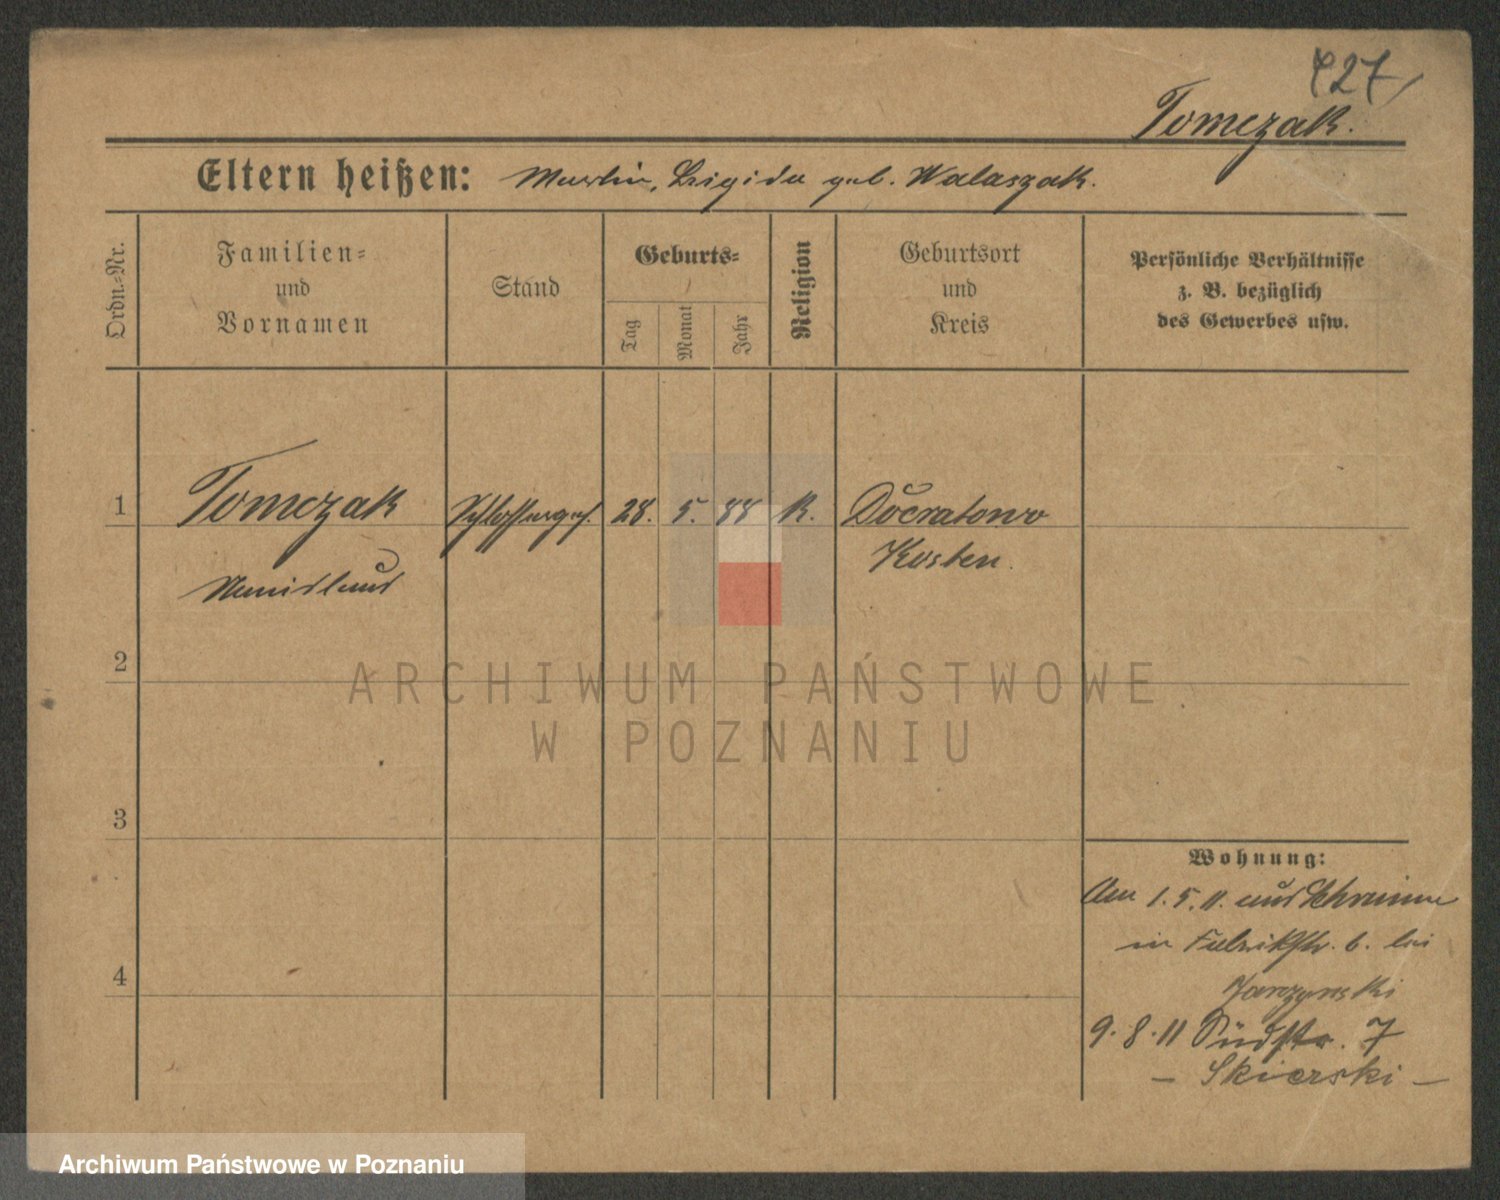 427
Tomczak.
Eltern heißen: Martin, Brigida geb. Walaszak.
Ordn.-Nr.
Familien-
und
Vornamen
Stand
Geburts-
Tag
Monat
Jahr
Religion
Geburtsort
und
Kreis
Persönliche Verhältnisse
z. B. bezüglich
des Gewerbes usw.
1 Tomczak Schlosserges. 28. 5. 88 K.
Kosten.
2
3
4
Wohnung:
Am 1. 5. 11. aus Schrimm
in Fabrikstr. 6. bei
Jarczynski
9. 8. 11 Südstr. 7
— Skierski —
ARCHIWUM PAŃSTWOWE
W POZNANIU
Archiwum Państwowe w Poznaniu